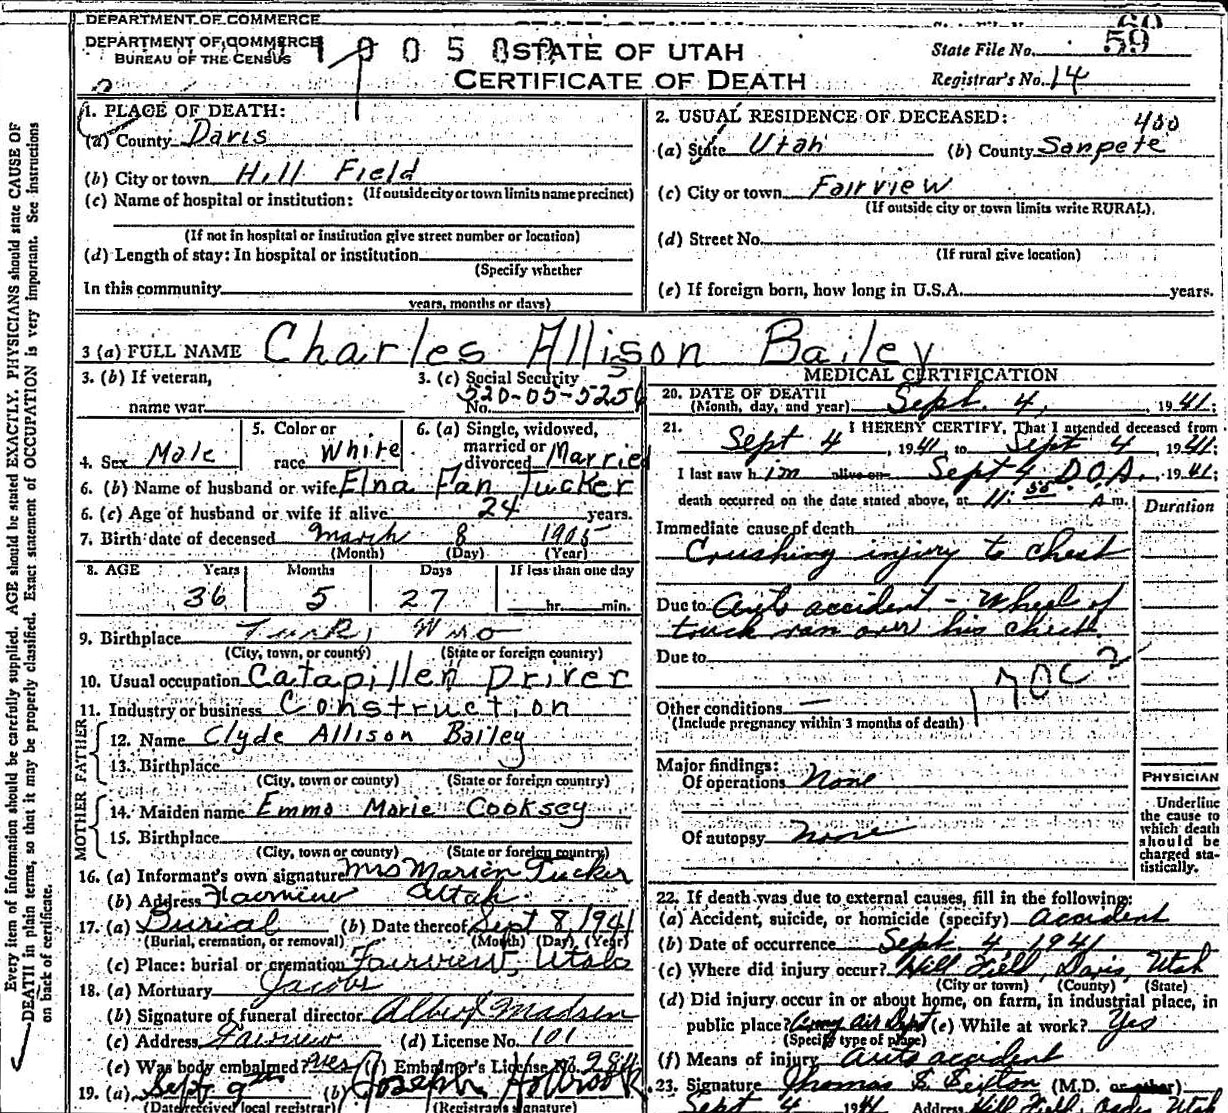 DEPARTMENT OF COMMERCE
DEPARTMENT OF COMMERCE
BUREAU OF THE CENSUS
STATE OF UTAH
CERTIFICATE OF DEATH
State File No. 59
Registrar's No. 14
1. PLACE OF DEATH:
(a) County Davis
(b) City or town Hill Field
(If outside city or town limits name precinct)
(c) Name of hospital or institution:
(If not in hospital or institution give street number or location)
(d) Length of stay: In hospital or institution
(Specify whether
In this community
years, months or days)
2. USUAL RESIDENCE OF DECEASED:
400
(a) State Utah (b) County Sanpete
(c) City or town Fairview
(If outside city or town limits write RURAL)
(d) Street No.
(If rural give location)
(e) If foreign born, how long in U.S.A. years.
3 (a) FULL NAME Charles Allison Bailey
3. (b) If veteran,
name war
3. (c) Social Security
No. 520-05-5256
4. Sex Male
5. Color or
race White
6. (a) Single, widowed,
married or
divorced Married
6. (b) Name of husband or wife Elna Fan Tucker
6. (c) Age of husband or wife if alive 24 years.
7. Birth date of deceased March 8 1905
(Month) (Day) (Year)
8. AGE Years Months Days If less than one day
36 5 27 hr. min.
9. Birthplace
(City, town, or county) (State or foreign country)
10. Usual occupation Catapillen Driver
11. Industry or business Construction
FATHER
12. Name Clyde Allison Bailey
13. Birthplace
(City, town or county) (State or foreign country)
MOTHER
14. Maiden name Emma Marie Cooksey
15. Birthplace
(City, town or county) (State or foreign country)
16. (a) Informant's own signature Mrs Marion Tucker
(b) Address Fairview Utah
17. (a) Burial (b) Date thereof Sept 8, 1941
(Burial, cremation, or removal) (Month) (Day) (Year)
(c) Place: burial or cremation Fairview, Utah
18. (a) Mortuary Jacobs
(b) Signature of funeral director Albert Madsen
(c) Address Fairview (d) License No. 101
(e) Was body embalmed? yes (f) Embalmer's License No. 284
19. (a) Sept 9th (b) Joseph Holbrook
(Date received local registrar) (Registrar's signature)
MEDICAL CERTIFICATION
20. DATE OF DEATH
(Month, day, and year) Sept. 4, 1941;
21. I HEREBY CERTIFY, That I attended deceased from
Sept 4, 1941 to Sept 4, 1941;
I last saw him alive on Sept 4 D.O.A. 1941;
death occurred on the date stated above, at 11:55 A m.
Duration
Immediate cause of death
Crushing injury to chest
Due to Auto accident - Wheel of
truck ran over his chest
Due to
170C2
Other conditions —
(Include pregnancy within 3 months of death)
Major findings:
Of operations None
Of autopsy None
PHYSICIAN
Underline
the cause to
which death
should be
charged sta-
tistically.
22. If death was due to external causes, fill in the following:
(a) Accident, suicide, or homicide (specify) accident
(b) Date of occurrence Sept. 4 1941
(c) Where did injury occur? Hill Field, Davis, Utah
(City or town) (County) (State)
(d) Did injury occur in or about home, on farm, in industrial place, in
public place? Army Air Dept (e) While at work? Yes
(Specify type of place)
(f) Means of injury Auto accident
23. Signature Thomas (M.D. or other)
Sept 4 1941 Address Hill Field, Utah
Every item of information should be carefully supplied. AGE should be stated EXACTLY. PHYSICIANS should state CAUSE OF
DEATH in plain terms, so that it may be properly classified. Exact statement of OCCUPATION is very important. See instructions
on back of certificate.